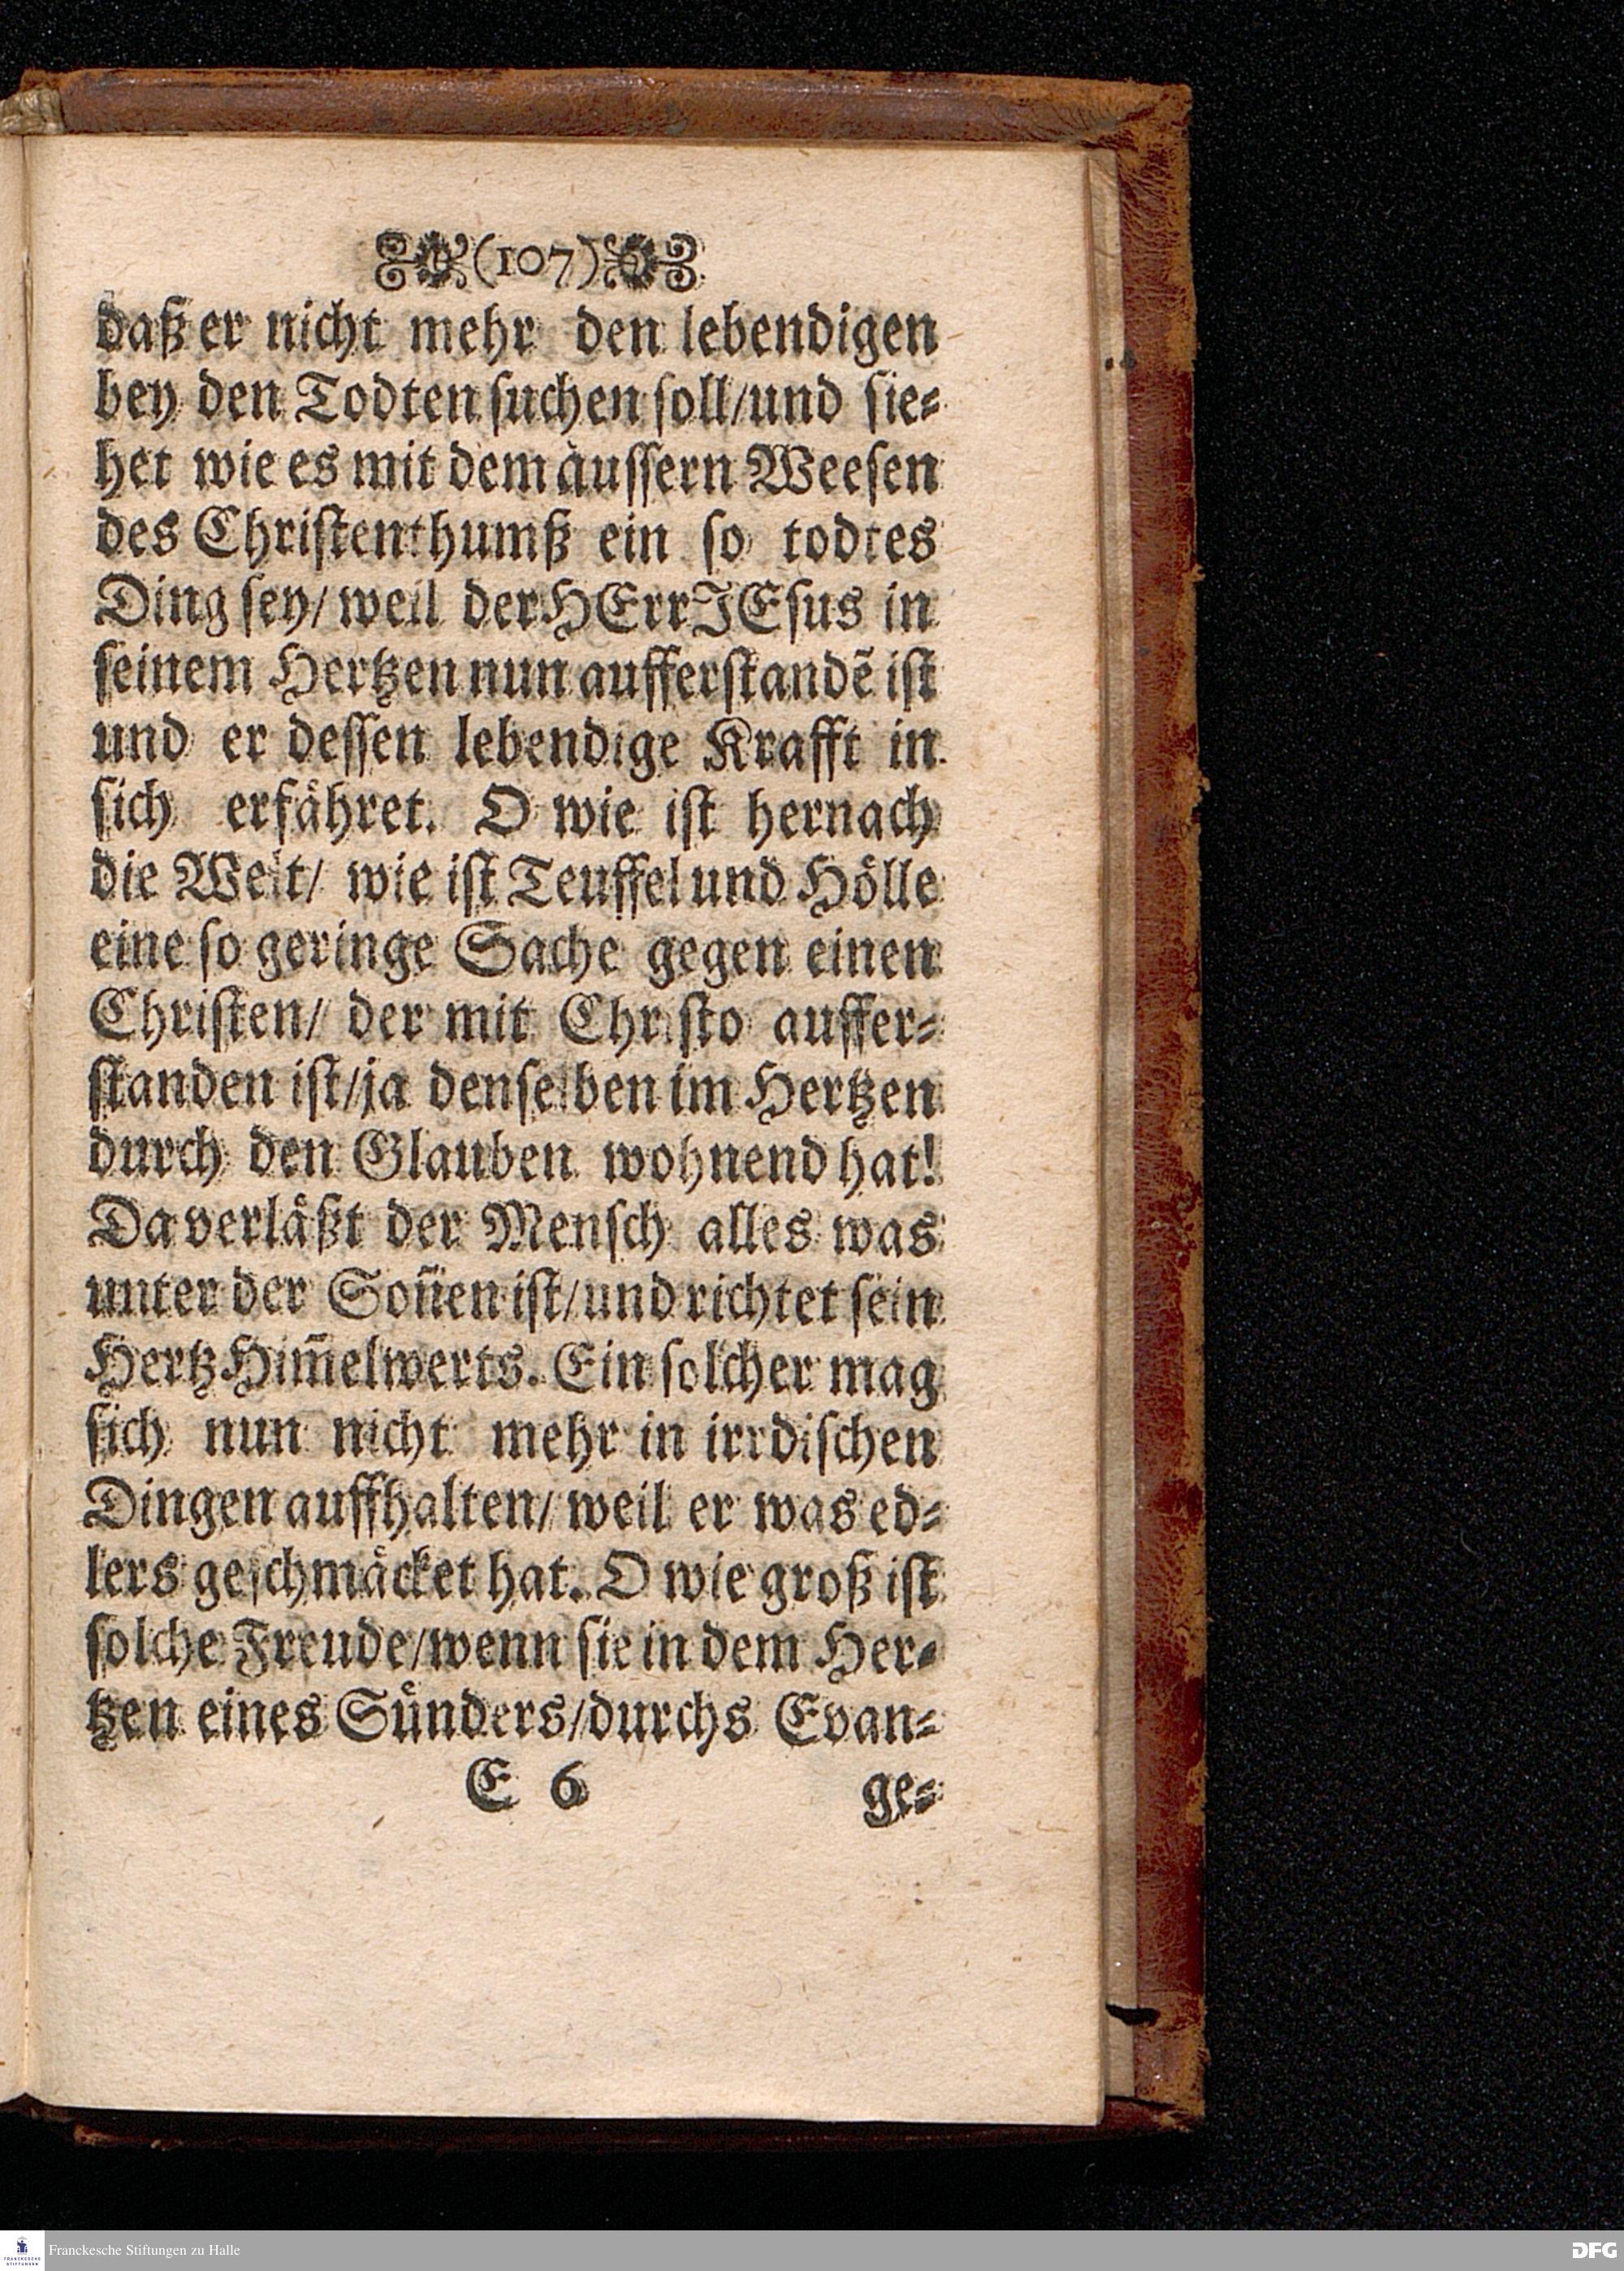 (107)
daß er nicht mehr den lebendigen
bey den Todten suchen soll/und sie-
het wie es mit dem äussern Weesen
des Christenthumß ein so todtes
Ding sey/ weil der HErr JEsus in
seinem Hertzen nun aufferstandẽ ist
und er dessen lebendige Krafft in
sich erfähret. O wie ist hernach
die Welt/ wie ist Teuffel und Hölle
eine so geringe Sache gegen einen
Christen/ der mit Christo auffer-
standen ist/ja denselben im Hertzen
durch den Glauben wohnend hat!
Da verläßt der Mensch alles was
unter der Son̄en ist/und richtet sein
Hertz Him̄elwerts. Ein solcher mag
sich nun nicht mehr in irrdischen
Dingen auffhalten/ weil er was ed-
lers geschmäcket hat. O wie groß ist
solche Freude/wenn sie in dem Her-
tzen eines Sünders/durchs Evan-
E 6 ge-
Franckesche Stiftungen zu Halle
DFG